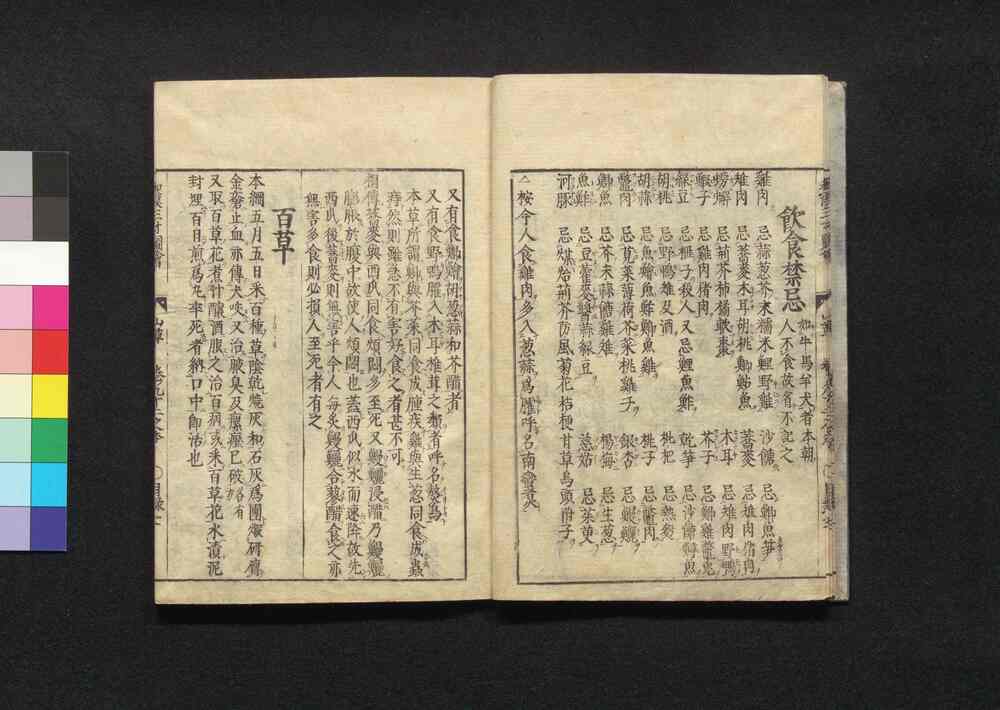 飲食禁忌 如牛馬羊犬者本朝
人不食故畧不記之
雞肉 忌蒜葱芥末糯米鯉野雞
沙餹 忌鯽魚笋
雉肉 忌蕎麥木耳胡桃鯽鮎魚
蕎麥 忌雄肉猪肉
螃蟹 忌荊芥柿橘軟棗
木耳 忌雉肉野鴨
蝦子 忌雞肉猪肉
芥子 忌鯽雞鼈兎
綠豆 忌榧子殺人又忌鯉魚鮓
乾笋 忌沙餹
胡桃 忌野鴨雉及酒
枇杷 忌熱麪
胡蒜 忌魚鱠魚鮓鯽魚雞
桃子 忌鼈肉
鼈肉 忌莧菜薄荷芥菜桃雞子
銀杏 忌鰻鱺
鯽魚 忌芥末蒜餹雞雉
楊梅 忌生葱
魚鮓 忌豆藿麥醬蒜綠豆
慈姑 忌茱萸
河豚 忌煤炲荊芥防風菊花桔梗甘草烏頭附子
△按今人食雞肉多入葱蒜爲臛呼名南蠻煑
又有食鯽鱠胡葱蒜和芥醋者
又有食野鴨臛入木耳椎茸之類者呼名
本草所謂鯽與芥菜同食成腫疾雞與生葱同食成蟲
痔然則雖急不有害好食之者甚不可
相傳蕎麥與西瓜同食煩悶多至死又鰻鱺浸醋乃鰻鱺
膨脹於腹中故使人煩悶也蓋西瓜似水而速降故先
西瓜後蕎麥則無害乎今人毎炙鰻鱺合蓼醋食之亦
無害多食則必損人至死者有之
百草
本綱五月五日采百種草陰乾燒灰和石灰爲團煅研傅
金瘡止血亦傅犬咬又治腋臭及瘰癧已破
又取百草花煮汁釀酒服之治百病亥采百草花水漬泥
封埋百日煎爲丸卒死者納口中卽活也